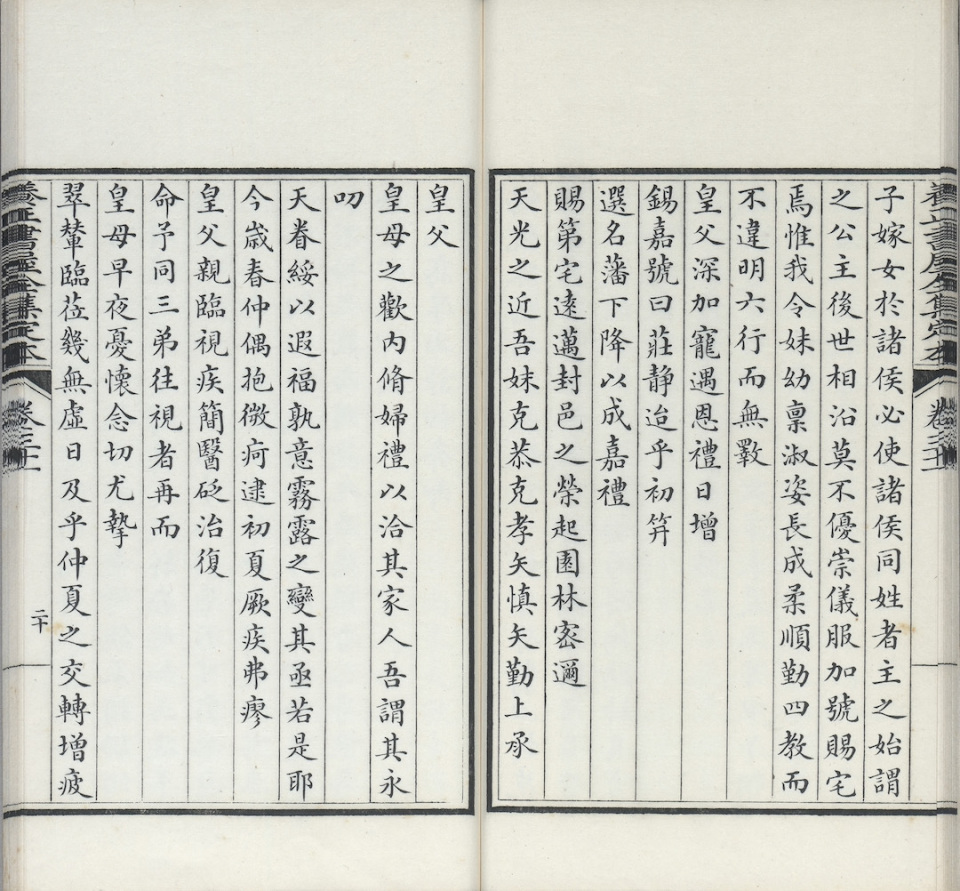 子嫁女於諸侯必使諸侯同姓者主之始謂
之公主後世相沿莫不優崇儀服加號賜宅
焉惟我令妹幼禀淑姿長成柔順勤四教而
不違明六行而無斁
皇父深加寵遇恩禮日增
錫嘉號曰莊静迨乎初笄
選名藩下降以成嘉禮
賜第宅遠邁封邑之榮起園林密邇
天光之近吾妹克恭克孝矢慎矢勤上承
皇父
皇母之歡内脩婦禮以洽其家人吾謂其永
叨
天眷綏以遐福孰意霧露之變其亟若是耶
今歳春仲偶抱微疴逮初夏厥疾弗瘳
皇父親臨視疾簡醫砭治復
命予同三弟往視者再而
皇母早夜憂懷念切尤摯
翠輦臨莅幾無虚日及乎仲夏之交轉增疲
養正書屋全集定本
二十